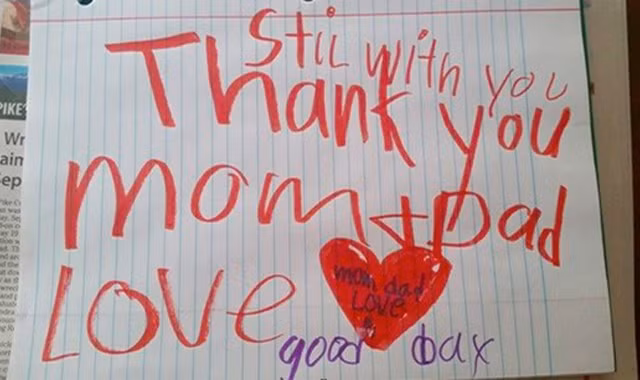 Stil with you
Thank you
mom + Dad
Love
mom dad
Love
good dax
PIKE'
Wr
aim
Sep